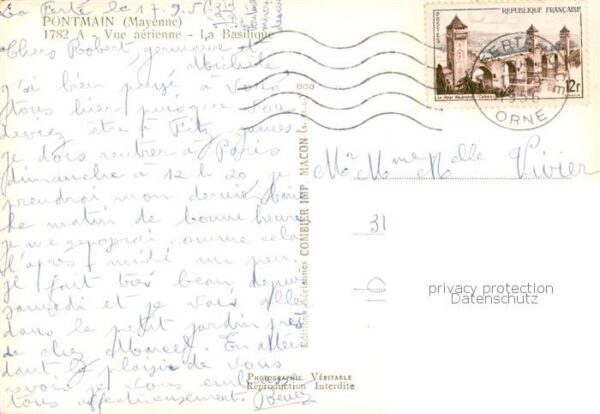 La Ferté le 17.9.56
PONTMAIN (Mayenne)
1782 A - Vue aérienne - La Basilique
Chers Robert, germaine et
j'ai bien pensé à vous
tous hier puisque vous
deviez être à Fitz James
je dois rentrer à Paris
dimanche à 12 h 20 je
prendrai mon dernier bain
le matin de bonne heure
je me reposerai comme cela
l'après midi un peu.
il fait très beau depuis
samedi et je vais aller
dans le petit jardin près
de chez Marcel. En atten
dant le plaisir de vous
revoir je vous embrasse
tous affectueusement.
Editions Aériennes COMBIER IMP. MACON
PHOTOGRAPHIE VÉRITABLE
Reproduction Interdite
REPUBLIQUE FRANÇAISE
POSTES
12F
Le Pont Valentré - Cahors
1956
ORNE
Mr Mme Melle Vivier
31
10
privacy protection
Datenschutz